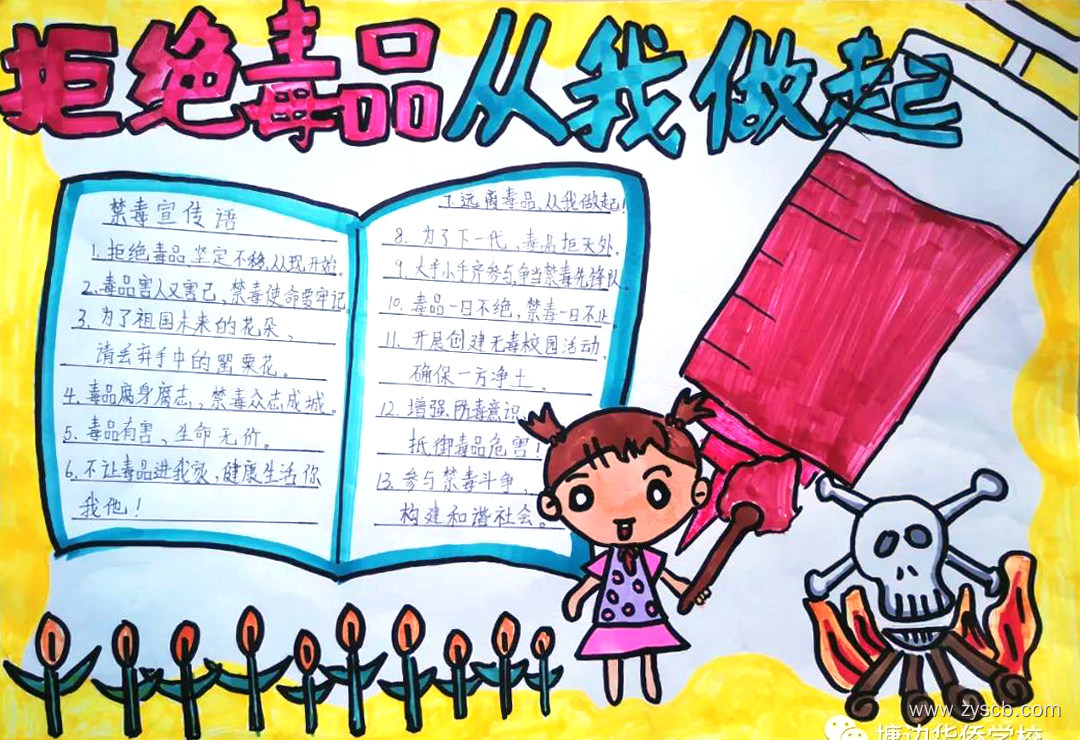 拒绝毒品从我做起
禁毒宣传语
1. 拒绝毒品、坚定不移、从现开始。
2. 毒品害人又害己、禁毒使命要牢记
3. 为了祖国未来的花朵、
请丢弃手中的罂粟花。
4. 毒品腐身腐志、禁毒众志成城。
5. 毒品有害、生命无价。
6. 不让毒品进我家,健康生活你
我他！
7. 远离毒品、从我做起！
8. 为了下一代、毒品拒天外。
9. 大手小手齐参与,争当禁毒先锋队。
10. 毒品一日不绝,禁毒一日不止。
11. 开展创建无毒校园活动、
确保一方净土。
12. 增强防毒意识、
抵御毒品危害！
13. 参与禁毒斗争、
构建和谐社会。
www.zyscb.com
塘边华侨学校